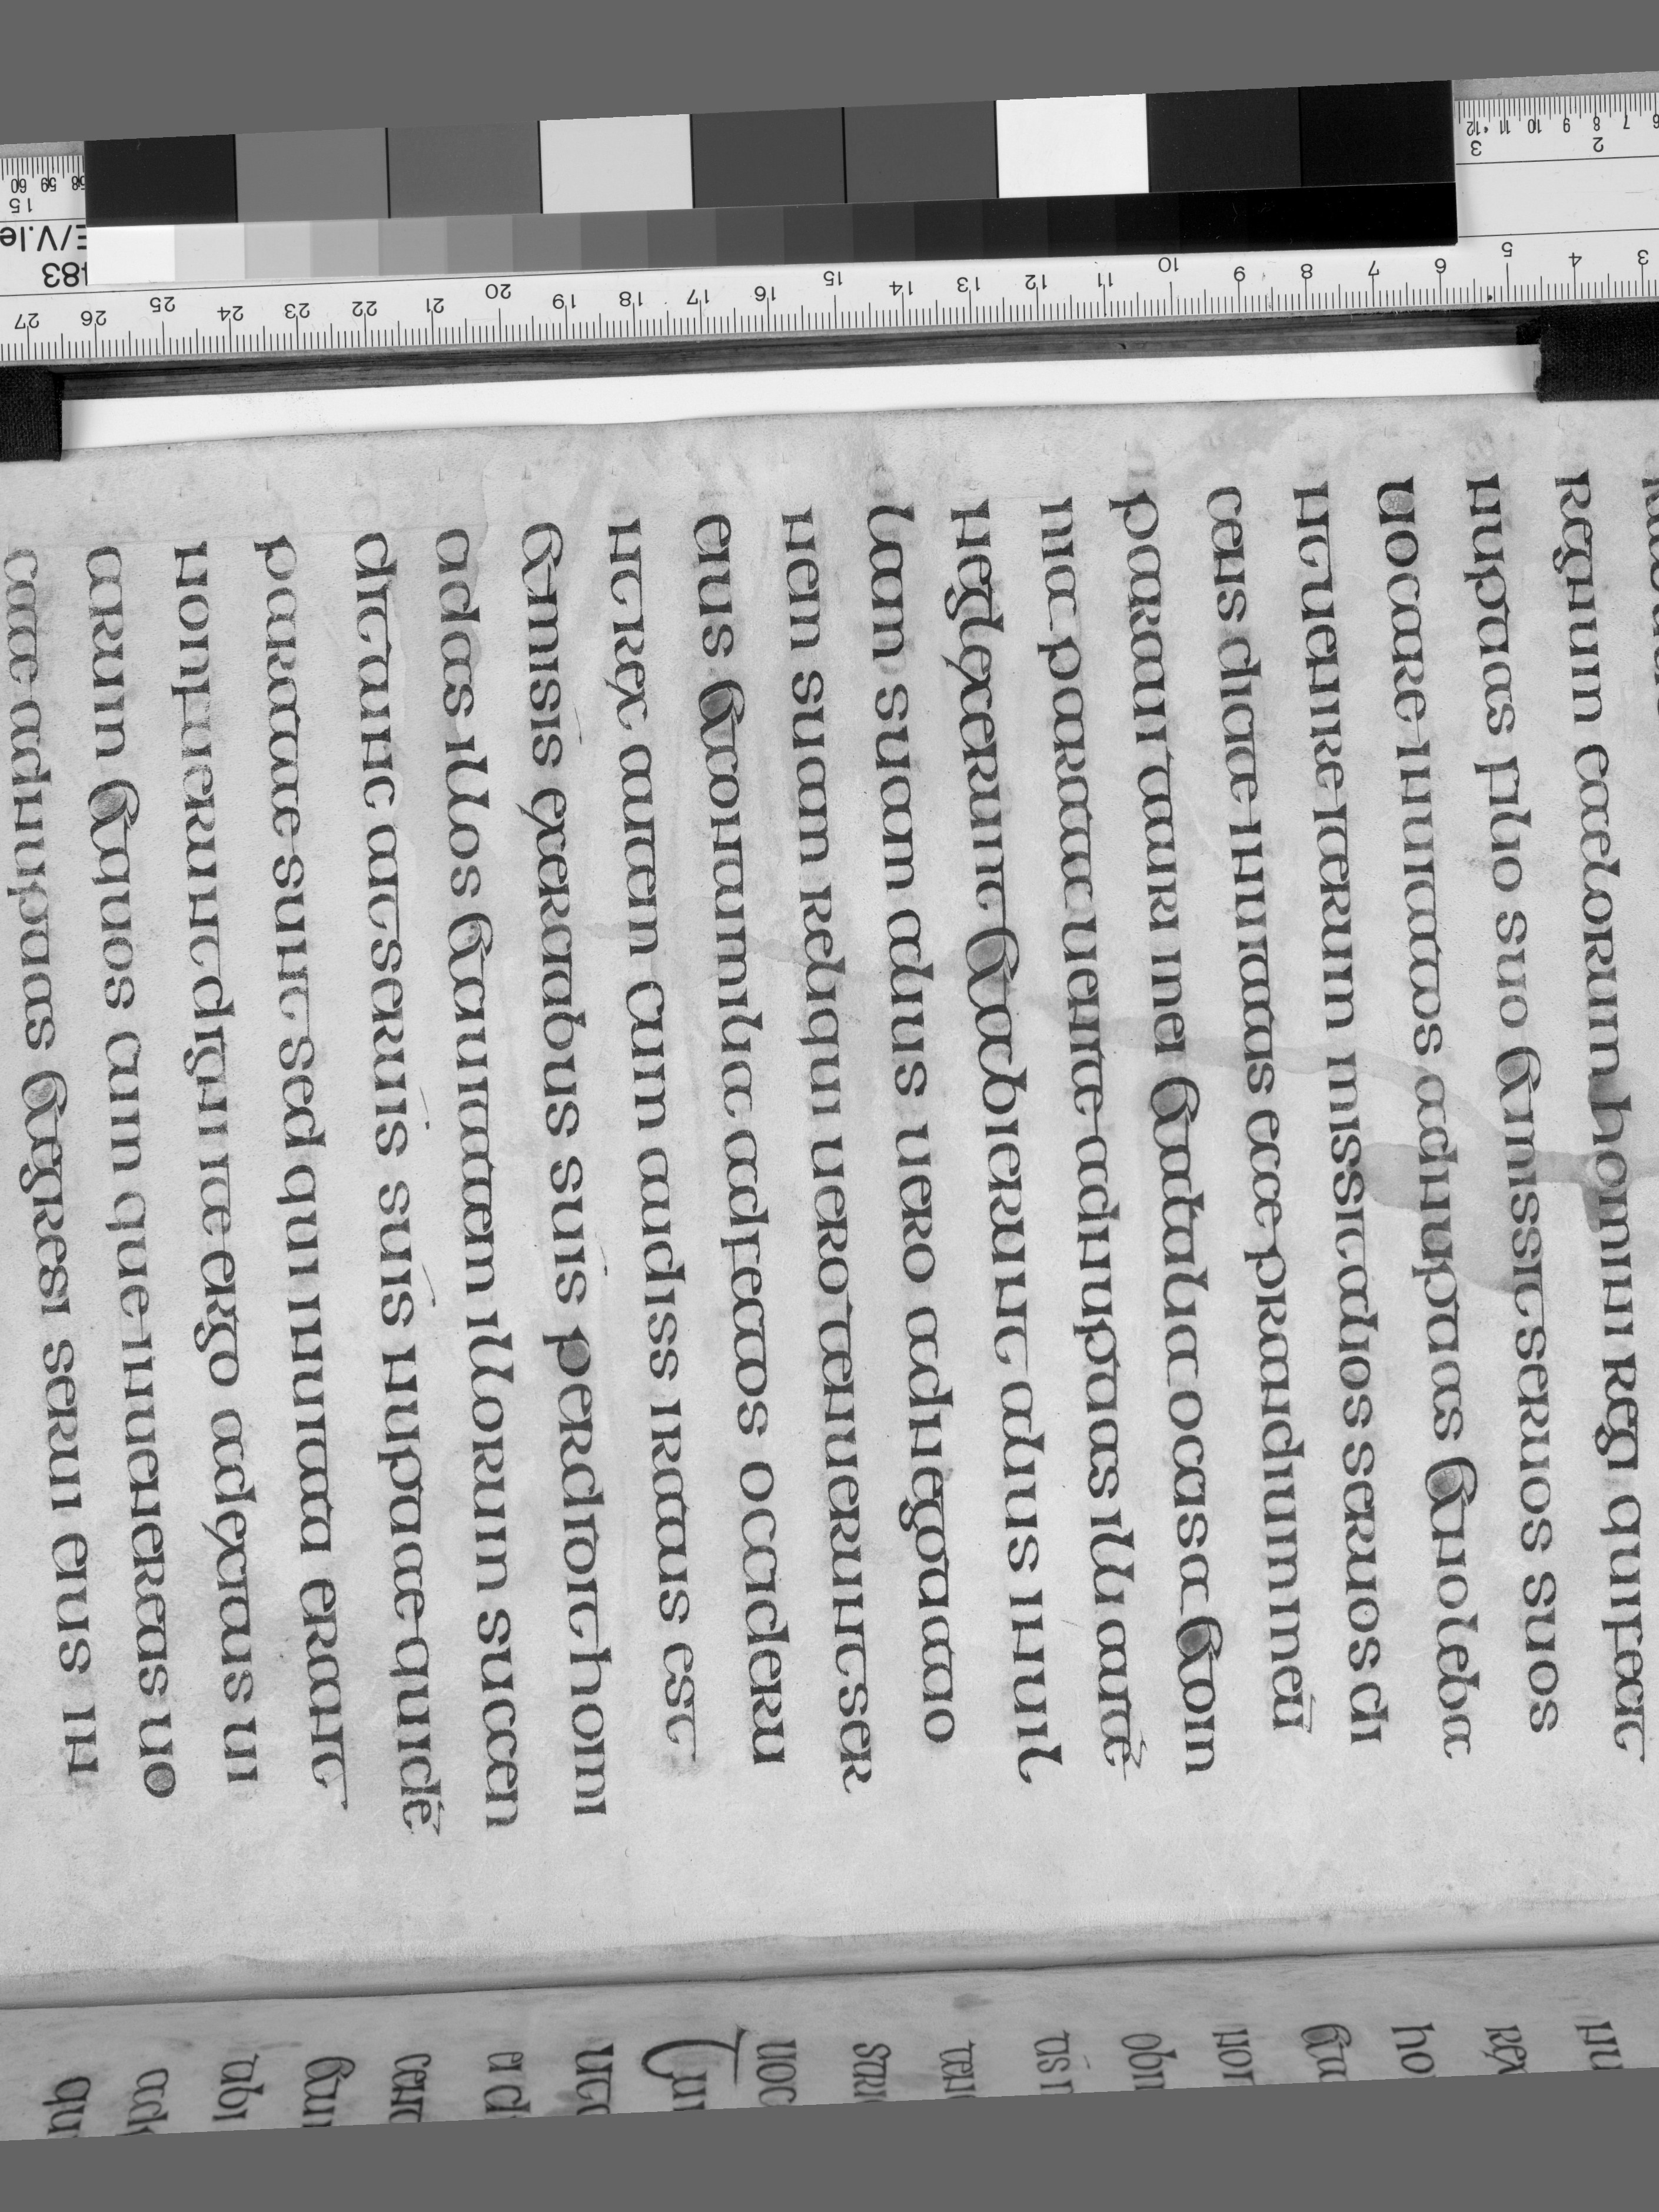 regnum caelorum homini regi qui fecit
nuptias filio suo Et misit seruos suos
uocare inuitatos ad nuptias Et noleba
nt uenire iterum misit alios seruos di
cens dicite inuitatis ecce prandium meū
paraui tauri mei Et altilia occisa Et om
nia parata uenite ad nuptias illi autē
neglexerunt Et abierunt alius in uil
lam suam alius uero ad negotiatio
nem suam reliqui uero tenuerunt ser
eius Et contumilia adfectos occideru
nt rex autem cum audiss iratus est
Et misis exercitibus suis perditit homi
cidas illos Et ciuitatem illorum succen
dit tunc ait seruis suis nuptiae quidē
paratae sunt sed qui inuitati erant
non fuerunt digni ite ergo ad exitus ui
arum Et quos cum que inueneritis uo
cate ad nuptias Et egresi serui eius in